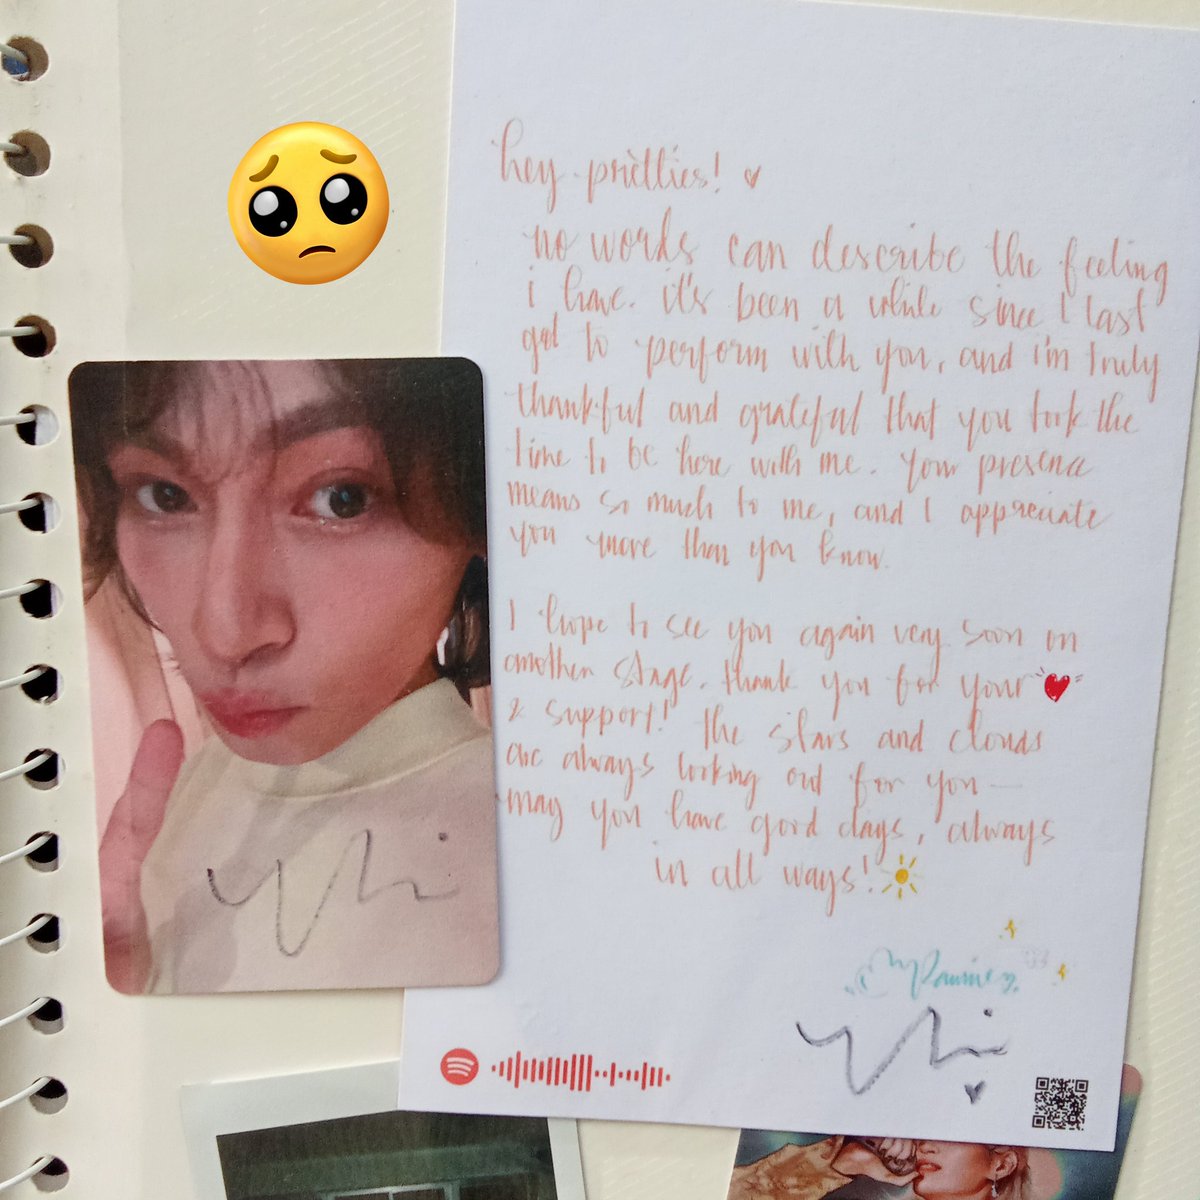 hey pretties!
no words can describe the feeling
i have. it's been a while since I last
got to perform with you, and i'm truly
thankful and grateful that you took the
time to be here with me. Your presence
means so much to me, and I appreciate
you more than you know.
I hope to see you again very soon on
another stage. thank you for your
& support! The stars and clouds
are always looking out for you —
may you have good days, always
in all ways!